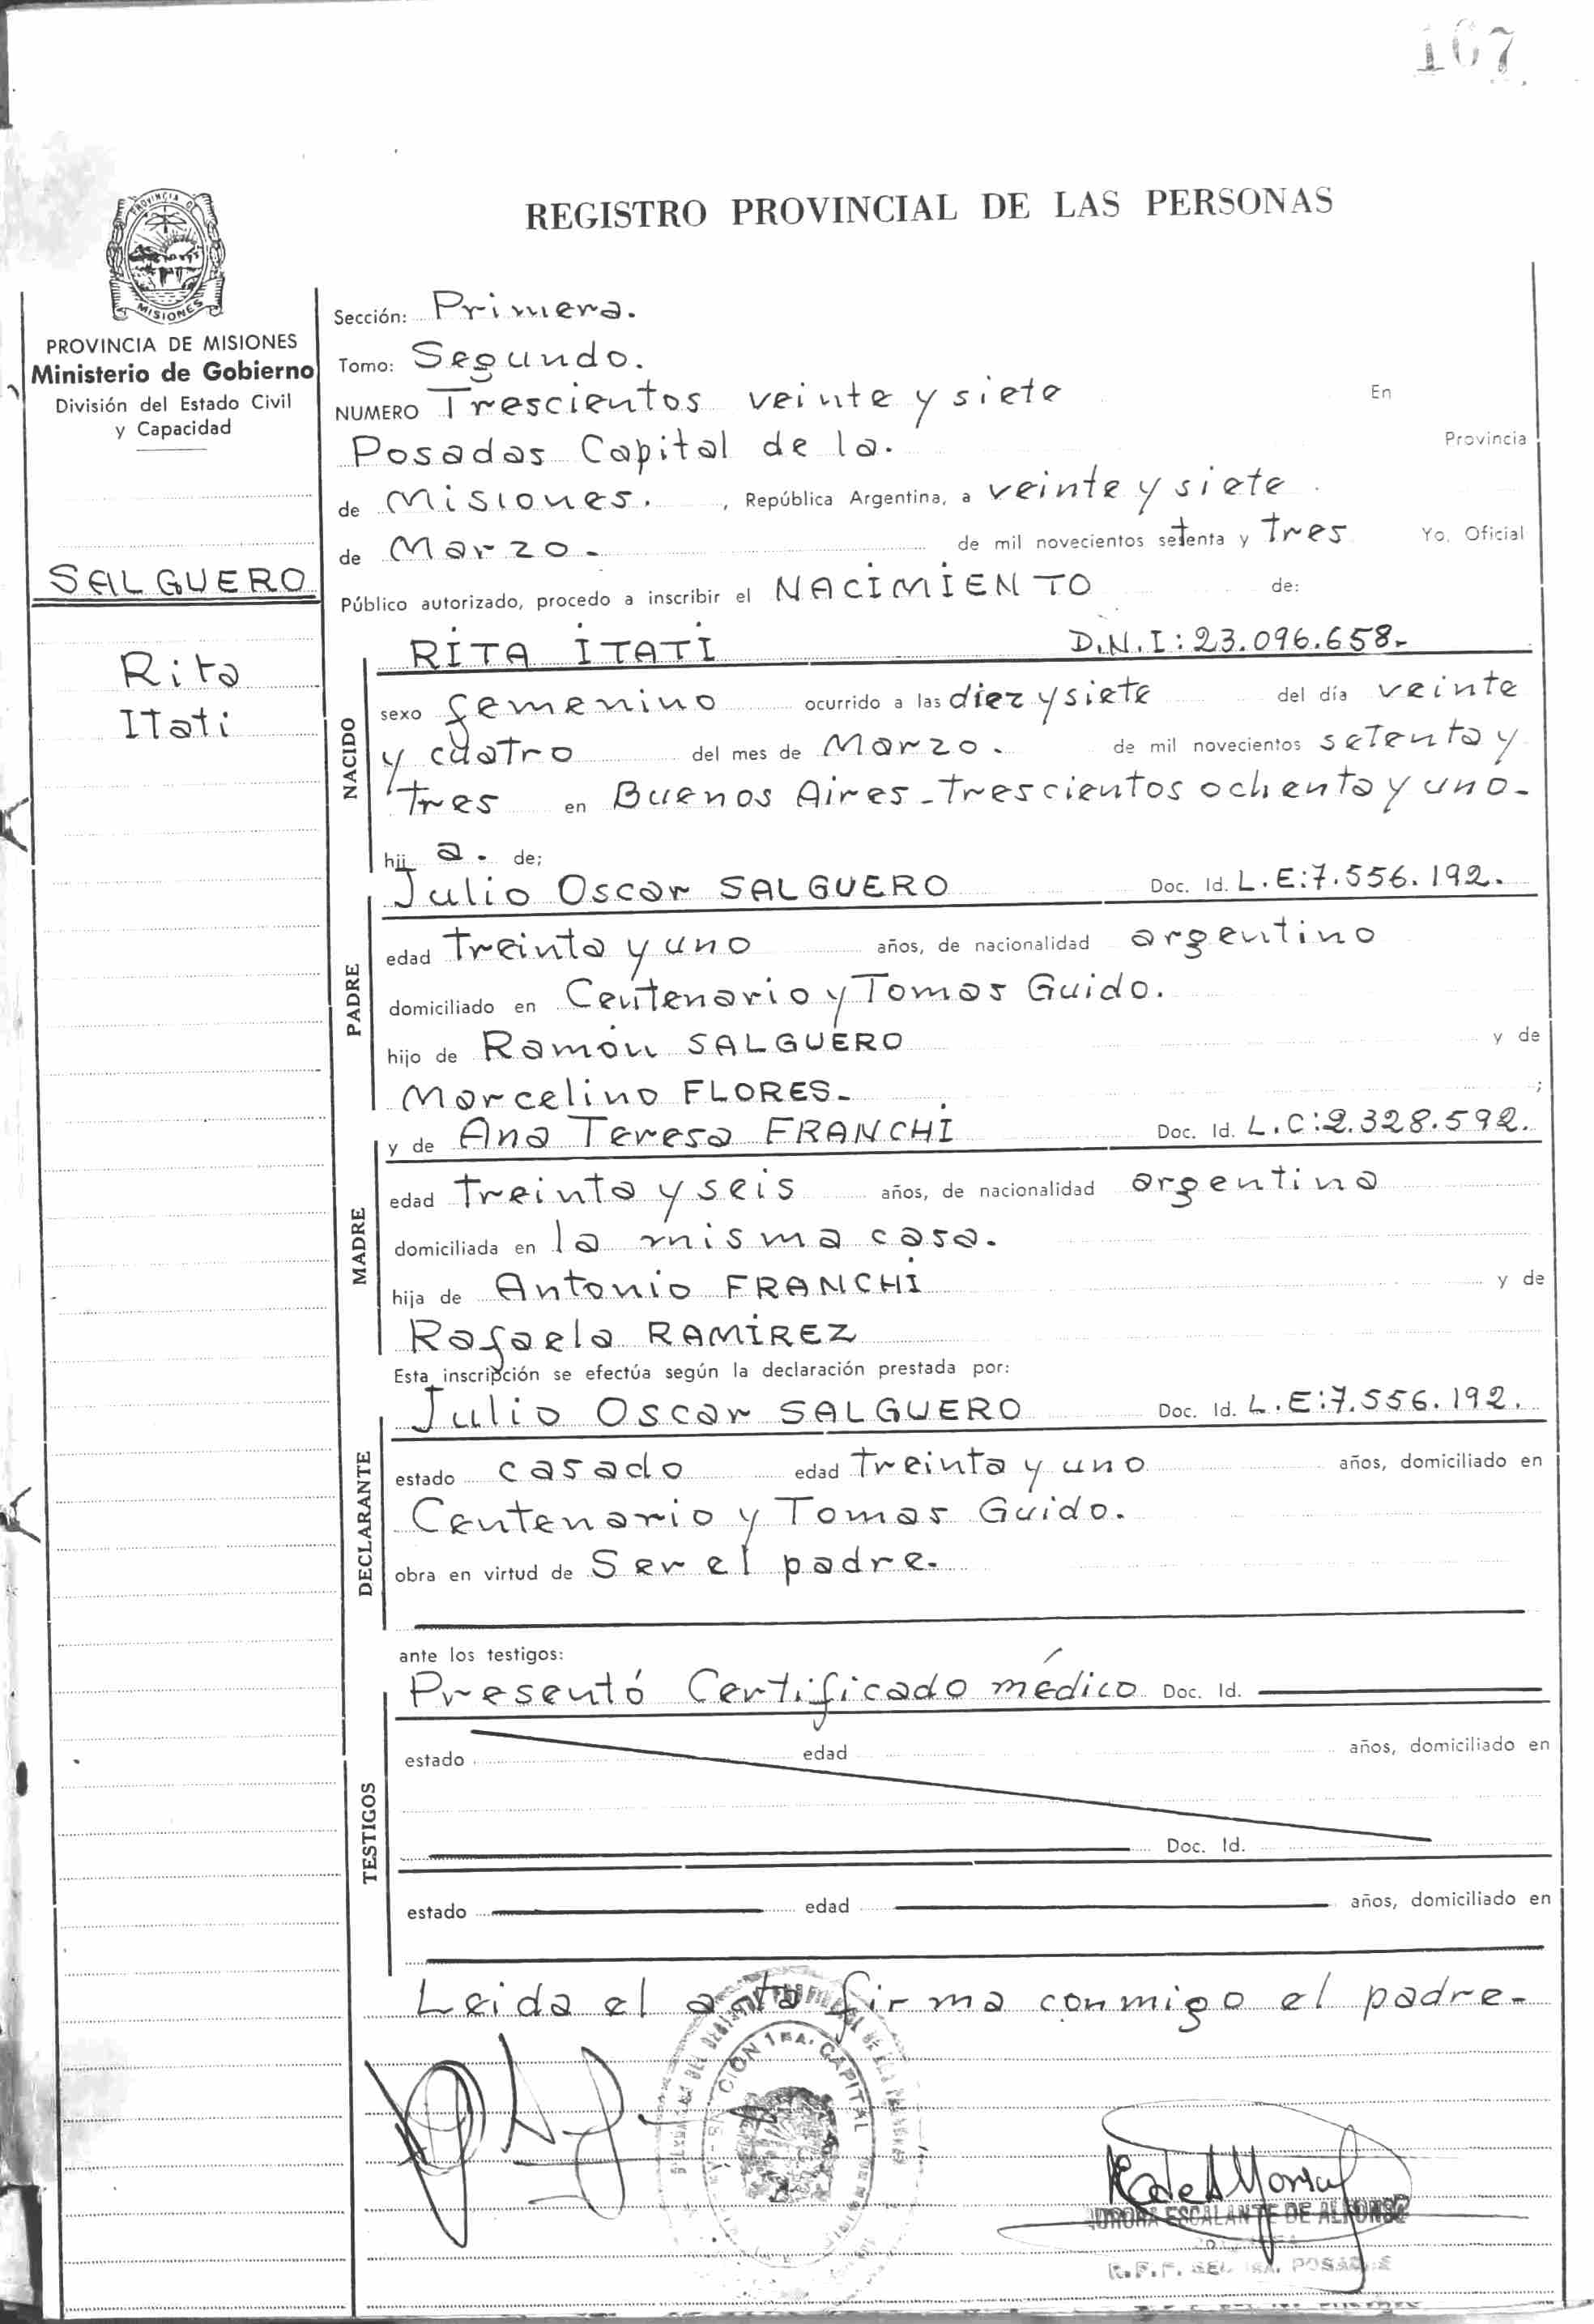 167
REGISTRO PROVINCIAL DE LAS PERSONAS
PROVINCIA DE
MISIONES
PROVINCIA DE MISIONES
Ministerio de Gobierno
División del Estado Civil
y Capacidad
SALGUERO
Rita
Itati
Sección: Primera.
Tomo: Segundo.
NUMERO Trescientos veinte y siete En
Posadas Capital de la. Provincia
de Misiones. , República Argentina, a veinte y siete
de Marzo - de mil novecientos setenta y tres Yo, Oficial
Público autorizado, procedo a inscribir el NACIMIENTO de:
RITA ITATI D.N.I: 23.096.658-
NACIDO
sexo femenino ocurrido a las diez y siete del día veinte
y cuatro del mes de Marzo. de mil novecientos setenta y
tres en Buenos Aires - trescientos ochenta y uno-
hij a. de;
Julio Oscar SALGUERO Doc. Id. L.E: 7.556.192.
PADRE
edad treinta y uno años, de nacionalidad argentino
domiciliado en Centenario y Tomas Guido.
hijo de Ramón SALGUERO y de
Marcelino FLORES- ;
y de Ana Teresa FRANCHI Doc. Id. L.C: 2.328.592.
MADRE
edad treinta y seis años, de nacionalidad argentina
domiciliada en la misma casa.
hija de Antonio FRANCHI y de
Rafaela RAMIREZ
Esta inscripción se efectúa según la declaración prestada por:
Julio Oscar SALGUERO Doc. Id. L.E: 7.556.192.
DECLARANTE
estado casado edad treinta y uno años, domiciliado en
Centenario y Tomas Guido.
obra en virtud de Ser el padre-
ante los testigos:
Presentó Certificado médico Doc. Id.
TESTIGOS
estado edad años, domiciliado en
Doc. Id.
estado edad años, domiciliado en
Leida el acta firma conmigo el padre-
CION 1RA. CAPITAL
ESCALANTE DE ALFONSO
POSADAS